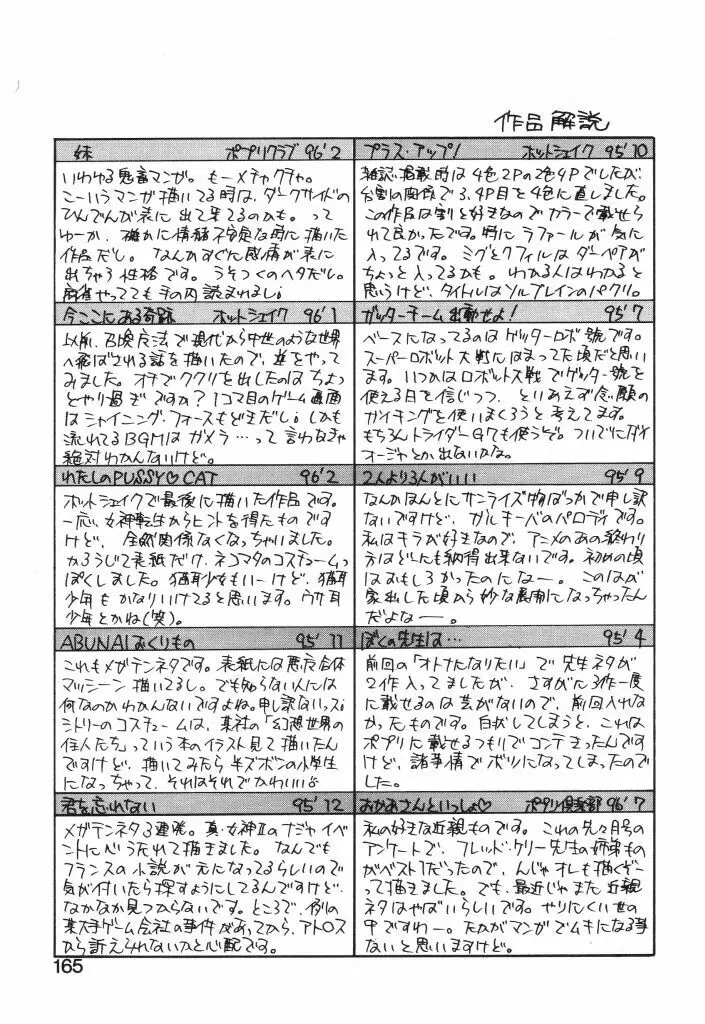 作品解説
妹 ポプリクラブ 96'2
いわゆる鬼畜マンガ。もーメチャクチャ。
こーいうマンガ描いてる時は、ダークサイドの
ひんでんが表に出て来てるのかも。って
ゆーか、確かに情緒不安定な時に描いた
作品だし。なんかすぐに感情が表に
出ちゃう性格です。うそつくのヘタだし。
麻雀やってても手の内読まれるし;
今ここにある奇跡 ホットシェイク 96'1
以前、召喚方法で現代から中世のような世界
へ飛ばされる話を描いたので、逆をやって
みました。オチでククリを出したのはちょっ
とやり過ぎですか?1コマ目のゲーム画面
はシャイニング・フォースもどきだし;しかも
流れてるBGMはガメラ…って言わなきゃ
絶対わかんないけど。
わたしのPUSSY♡CAT 96'2
ホットシェイクで最後に描いた作品です。
一応、女神転生からヒントを得たものです
けど、全然関係なくなっちゃいました。
かろうじて表紙だけ、ネコマタのコスチュームっ
ぽくしました。猫耳少女もいーけど、猫耳
少年もかなりいけてると思います。ウサ耳
少年とかね(笑)。
ABUNAIおくりもの 95'11
これもメガテンネタです。表紙には悪魔合体
マッシーン描いてるし。でも知らない人には
何なのかわかんないですよね。申し訳ないっス;
シトリーのコスチュームは、某社の「幻想世界の
住人たち」っていう本のイラスト見て描いたん
ですけど、描いてみたら半ズボンの小学生
になっちゃって、それはそれでかわいい♡
君を忘れない 95'12
メガテンネタ3連発。真・女神Ⅱのナジャイベ
ントに心うたれて描きました。なんでも
フランスの小説が元になってるらしいので
気が付いたら探すようにしてるんですけど
なかなか見つからないです。ところで、例の
某大手ゲーム会社の事件があってから、アトロス
から訴えられないかと心配です。
プラス・アップ! ホットシェイク 95'10
雑誌掲載時は4色2Pの2色4Pでしたが、
台割の関係で3、4P目を4色に直しました。
この作品は割と好きなのでカラーで載せら
れて良かったです。特にラファールが気に
入ってるです。ミグとクフィルはダーペアが
ちょっと入ってるかも。わかる人はわかると
思うけど、タイトルはソルブレインのパクリ。
ガッターチーム出動せよ! 95'7
ベースになってるのはゲッターロボ號です。
スーパーロボット大戦にはまってた頃だと思い
ます。いつかはロボット大戦でゲッター號を
使える日を信じつつ、といあえず念願の
ガイキングを使いまくろうと考えてます。
もちろんトライダーG7も使うぞ。ついでにダイ
オージャとか出ないかな。
2人より3人がいい 95'9
なんかほんとにサンライズ物ばっかで申し訳
ないですけど、ガルキーバのパロディです。
私はキラが好きなので、アニメのあの終わり
方はどーにも納得出来ないです。初めの頃
はおもしろかったのになー。このはが
家出した頃から妙な展開になっちゃったん
だよなー。
ぼくの先生は… 95'4
前回の「オトナになりたい」で先生ネタが
2作入ってましたが、さすがに3作一度
に載せるのは芸がないので、前回入れな
かったものです。白状してしまうと、これは
ポプリに載せるつもりでコンテきったんです
けど、諸事情でボツになってしまったので
した。
おかあさんといっしょ♡ ポプリ倶楽部 96'7
私の好きな近親ものです。これの先々月号の
アンケートで、フレッド・ケリー先生の姉弟もの
がベスト1だったので、んじゃオレも描くぞー
って描きました。でも、最近じゃまた近親
ネタはやばいらしいです。やりにくい世の
中ですわー。たかがマンガでムキになる事
ないと思いますけど。
165